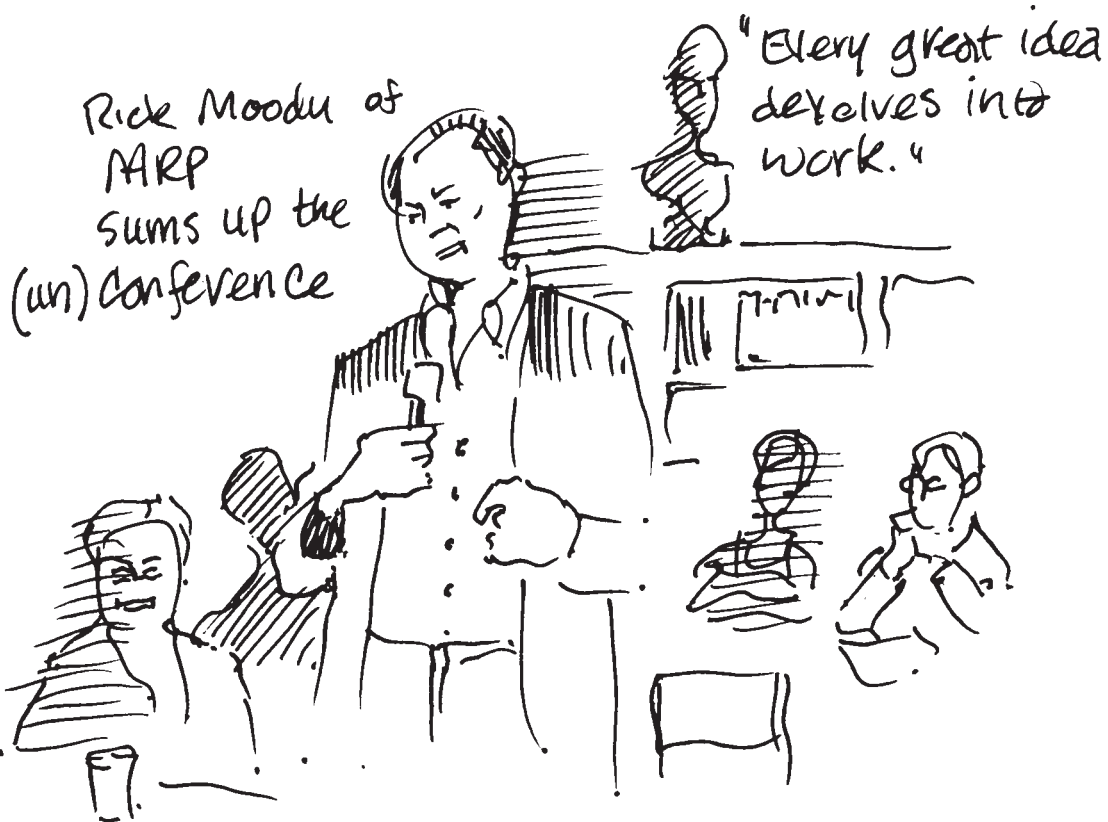 Rick Moody of
AARP
sums up the
(un)conference
"Every great idea
devolves into
work."